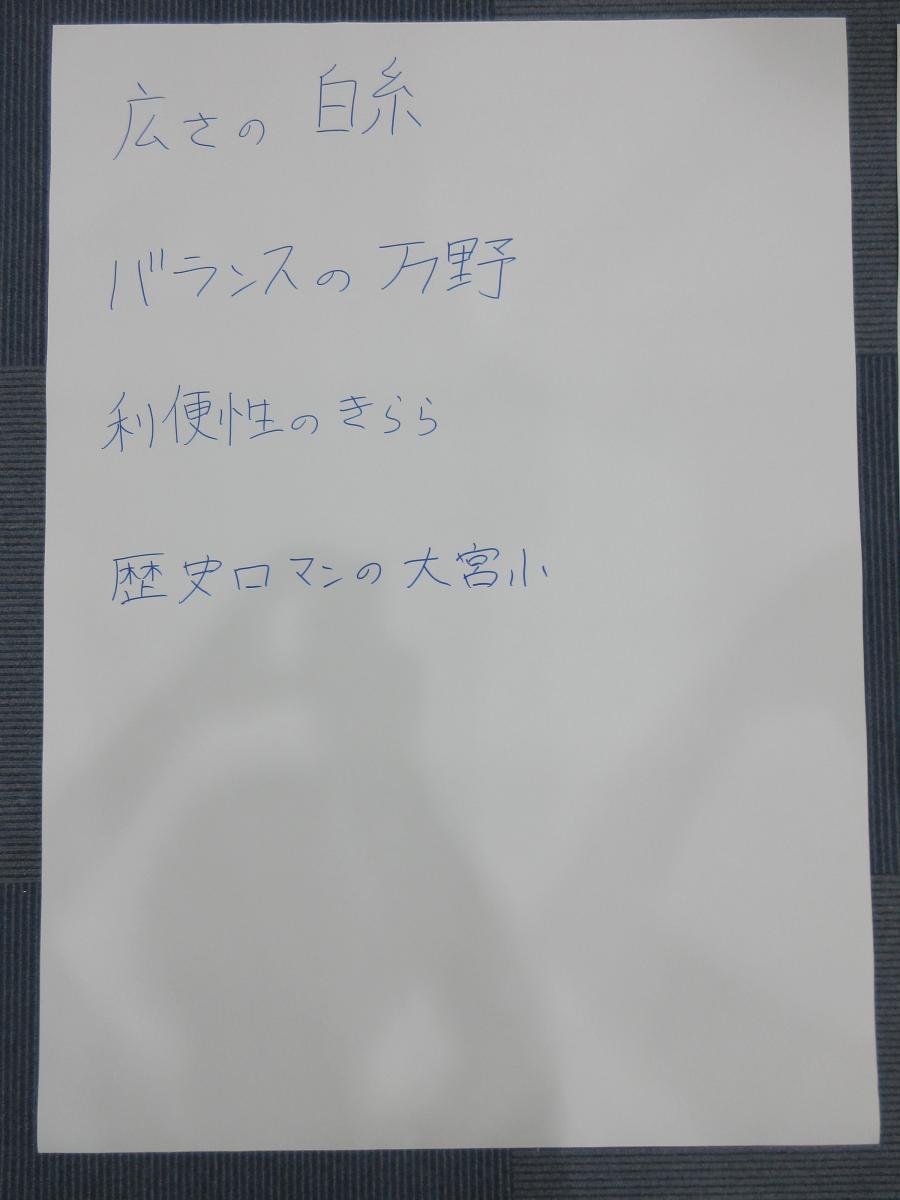 広さの 白糸
バランスの 万野
利便性のきらら
歴史ロマンの大宮小